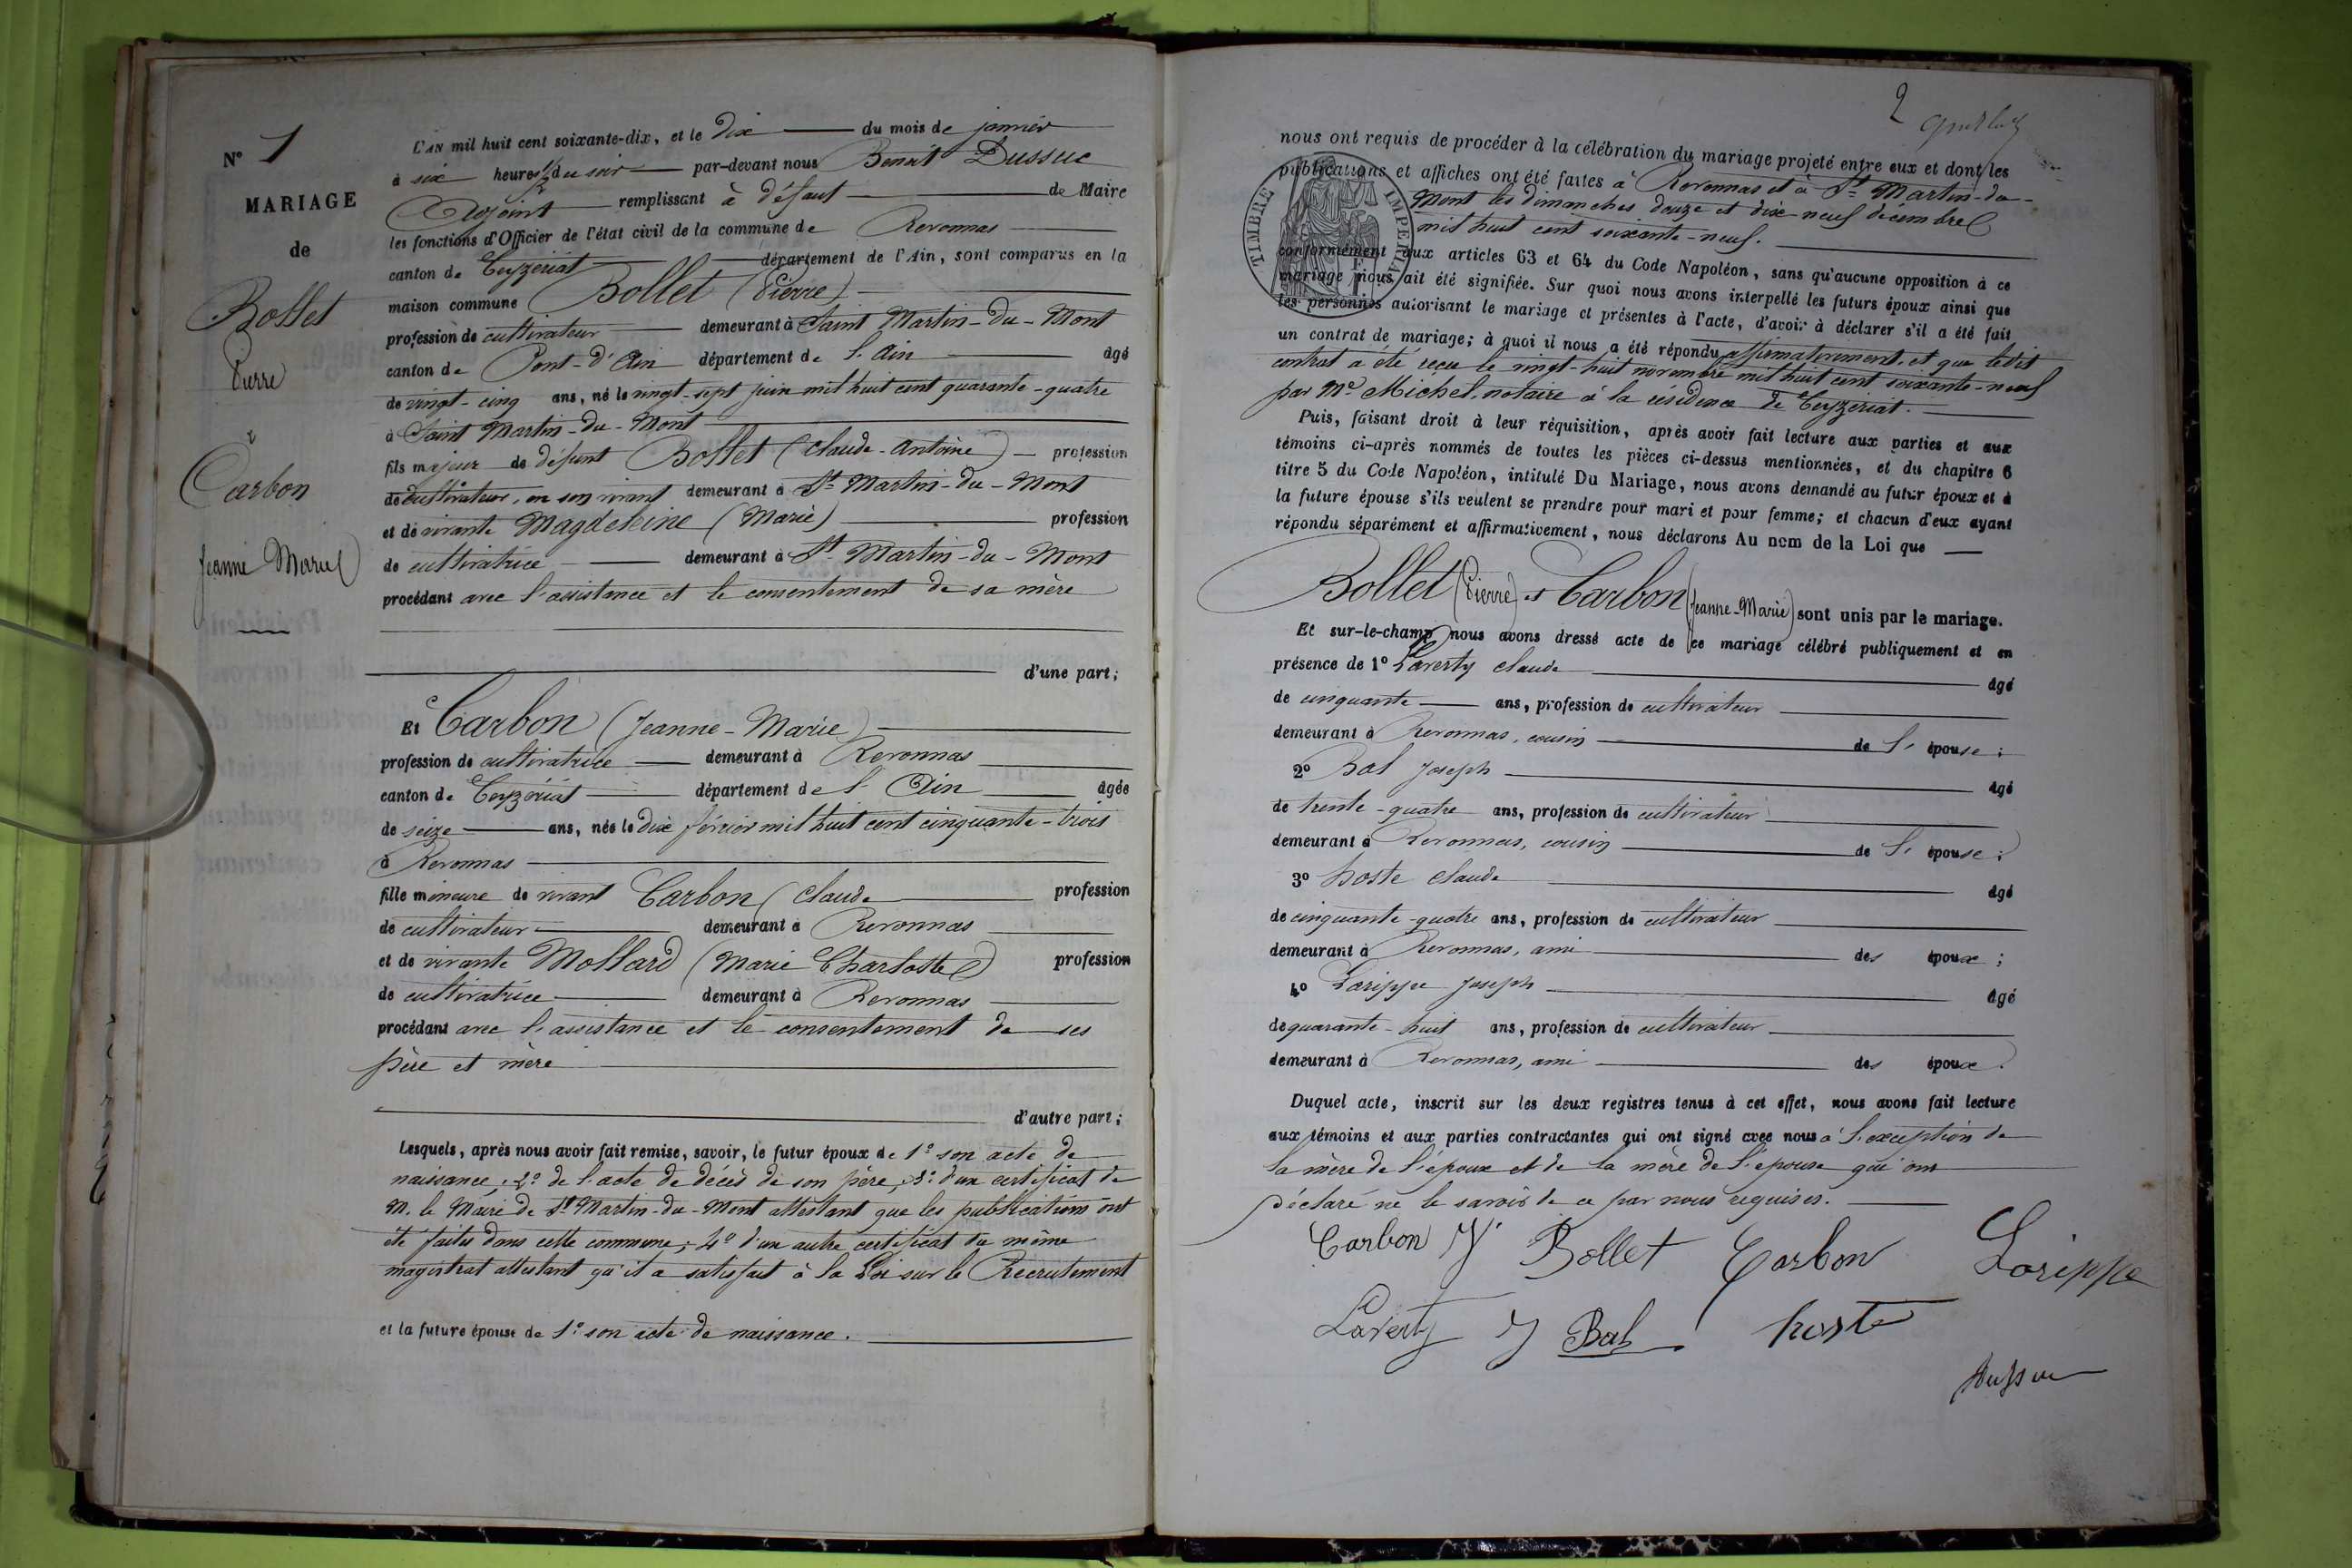 N° 1
MARIAGE
de
Bollet
Pierre
et
Carbon
Jeanne Marie
L'AN mil huit cent soixante-dix, et le dix du mois de janvier
à six heures 1/2 du soir par-devant nous Benoit Dussuc
Adjoint remplissant à défaut de Maire
les fonctions d'Officier de l'état civil de la commune de Revonnas
canton de Ceyzériat département de l'Ain, sont comparus en la
maison commune Bollet (Pierre)
profession de cultivateur demeurant à Saint Martin-du-Mont
canton de Pont-d'Ain département de l'Ain âgé
de vingt-cinq ans, né le vingt-sept juin mil huit cent quarante-quatre
à Saint Martin-du-Mont
fils majeur de défunt Bollet (Claude-Antoine) profession
de cultivateur, en son vivant demeurant à St Martin-du-Mont
et de vivante Magdeleine (Marie) profession
de cultivatrice demeurant à St Martin-du-Mont
procédant avec l'assistance et le consentement de sa mère
d'une part;
Et Carbon (Jeanne-Marie)
profession de cultivatrice demeurant à Revonnas
canton de Ceyzériat département de l'Ain âgée
de seize ans, née le dix février mil huit cent cinquante-trois
à Revonnas
fille mineure de vivant Carbon (Claude profession
de cultivateur demeurant à Revonnas
et de vivante Mollard (Marie Charlotte) profession
de cultivatrice demeurant à Revonnas
procédant avec l'assistance et le consentement de ses
père et mère
d'autre part;
Lesquels, après nous avoir fait remise, savoir, le futur époux de 1° son acte de
naissance; 2° de l'acte de décès de son père; 3° d'un certificat de
M. le Maire de St Martin-du-Mont attestant que les publications ont
été faites dans cette commune; 4° d'un autre certificat du même
magistrat attestant qu'il a satisfait à la Loi sur le Recrutement
et la future épouse de 1° son acte de naissance.
2
nous ont requis de procéder à la célébration du mariage projeté entre eux et dont les
publications et affiches ont été faites à Revonnas et à St Martin-du-
Mont les dimanches douze et dix-neuf décembre
mil huit cent soixante-neuf.
TIMBRE IMPERIAL
conformément aux articles 63 et 64 du Code Napoléon, sans qu'aucune opposition à ce
mariage nous ait été signifiée. Sur quoi nous avons interpellé les futurs époux ainsi que
les personnes autorisant le mariage et présentes à l'acte, d'avoir à déclarer s'il a été fait
un contrat de mariage; à quoi il nous a été répondu affirmativement, et que ledit
contrat a été reçu le vingt-huit novembre mil huit cent soixante-neuf
par Me Michel, notaire à la résidence de Ceyzériat.
Puis, faisant droit à leur réquisition, après avoir fait lecture aux parties et aux
témoins ci-après nommés de toutes les pièces ci-dessus mentionnées, et du chapitre 6
titre 5 du Code Napoléon, intitulé Du Mariage, nous avons demandé au futur époux et à
la future épouse s'ils veulent se prendre pour mari et pour femme; et chacun d'eux ayant
répondu séparément et affirmativement, nous déclarons Au nom de la Loi que
Bollet (Pierre) et Carbon (Jeanne-Marie) sont unis par le mariage.
Et sur-le-champ nous avons dressé acte de ce mariage célébré publiquement et en
présence de 1° Laverty Claude âgé
de cinquante ans, profession de cultivateur
demeurant à Revonnas, cousin de l'épouse;
2° Bal Joseph âgé
de trente-quatre ans, profession de cultivateur
demeurant à Revonnas, cousin de l'épouse;
3° hoste Claude âgé
de cinquante-quatre ans, profession de cultivateur
demeurant à Revonnas, ami des époux;
4° Larippe Joseph âgé
de quarante-huit ans, profession de cultivateur
demeurant à Revonnas, ami des époux.
Duquel acte, inscrit sur les deux registres tenus à cet effet, nous avons fait lecture
aux témoins et aux parties contractantes qui ont signé avec nous à l'exception de
la mère de l'époux et de la mère de l'épouse qui ont
déclaré ne le savoir de ce par nous requises.
Carbon J Bollet Carbon Larippe
Laverty J Bal hoste
Dussuc